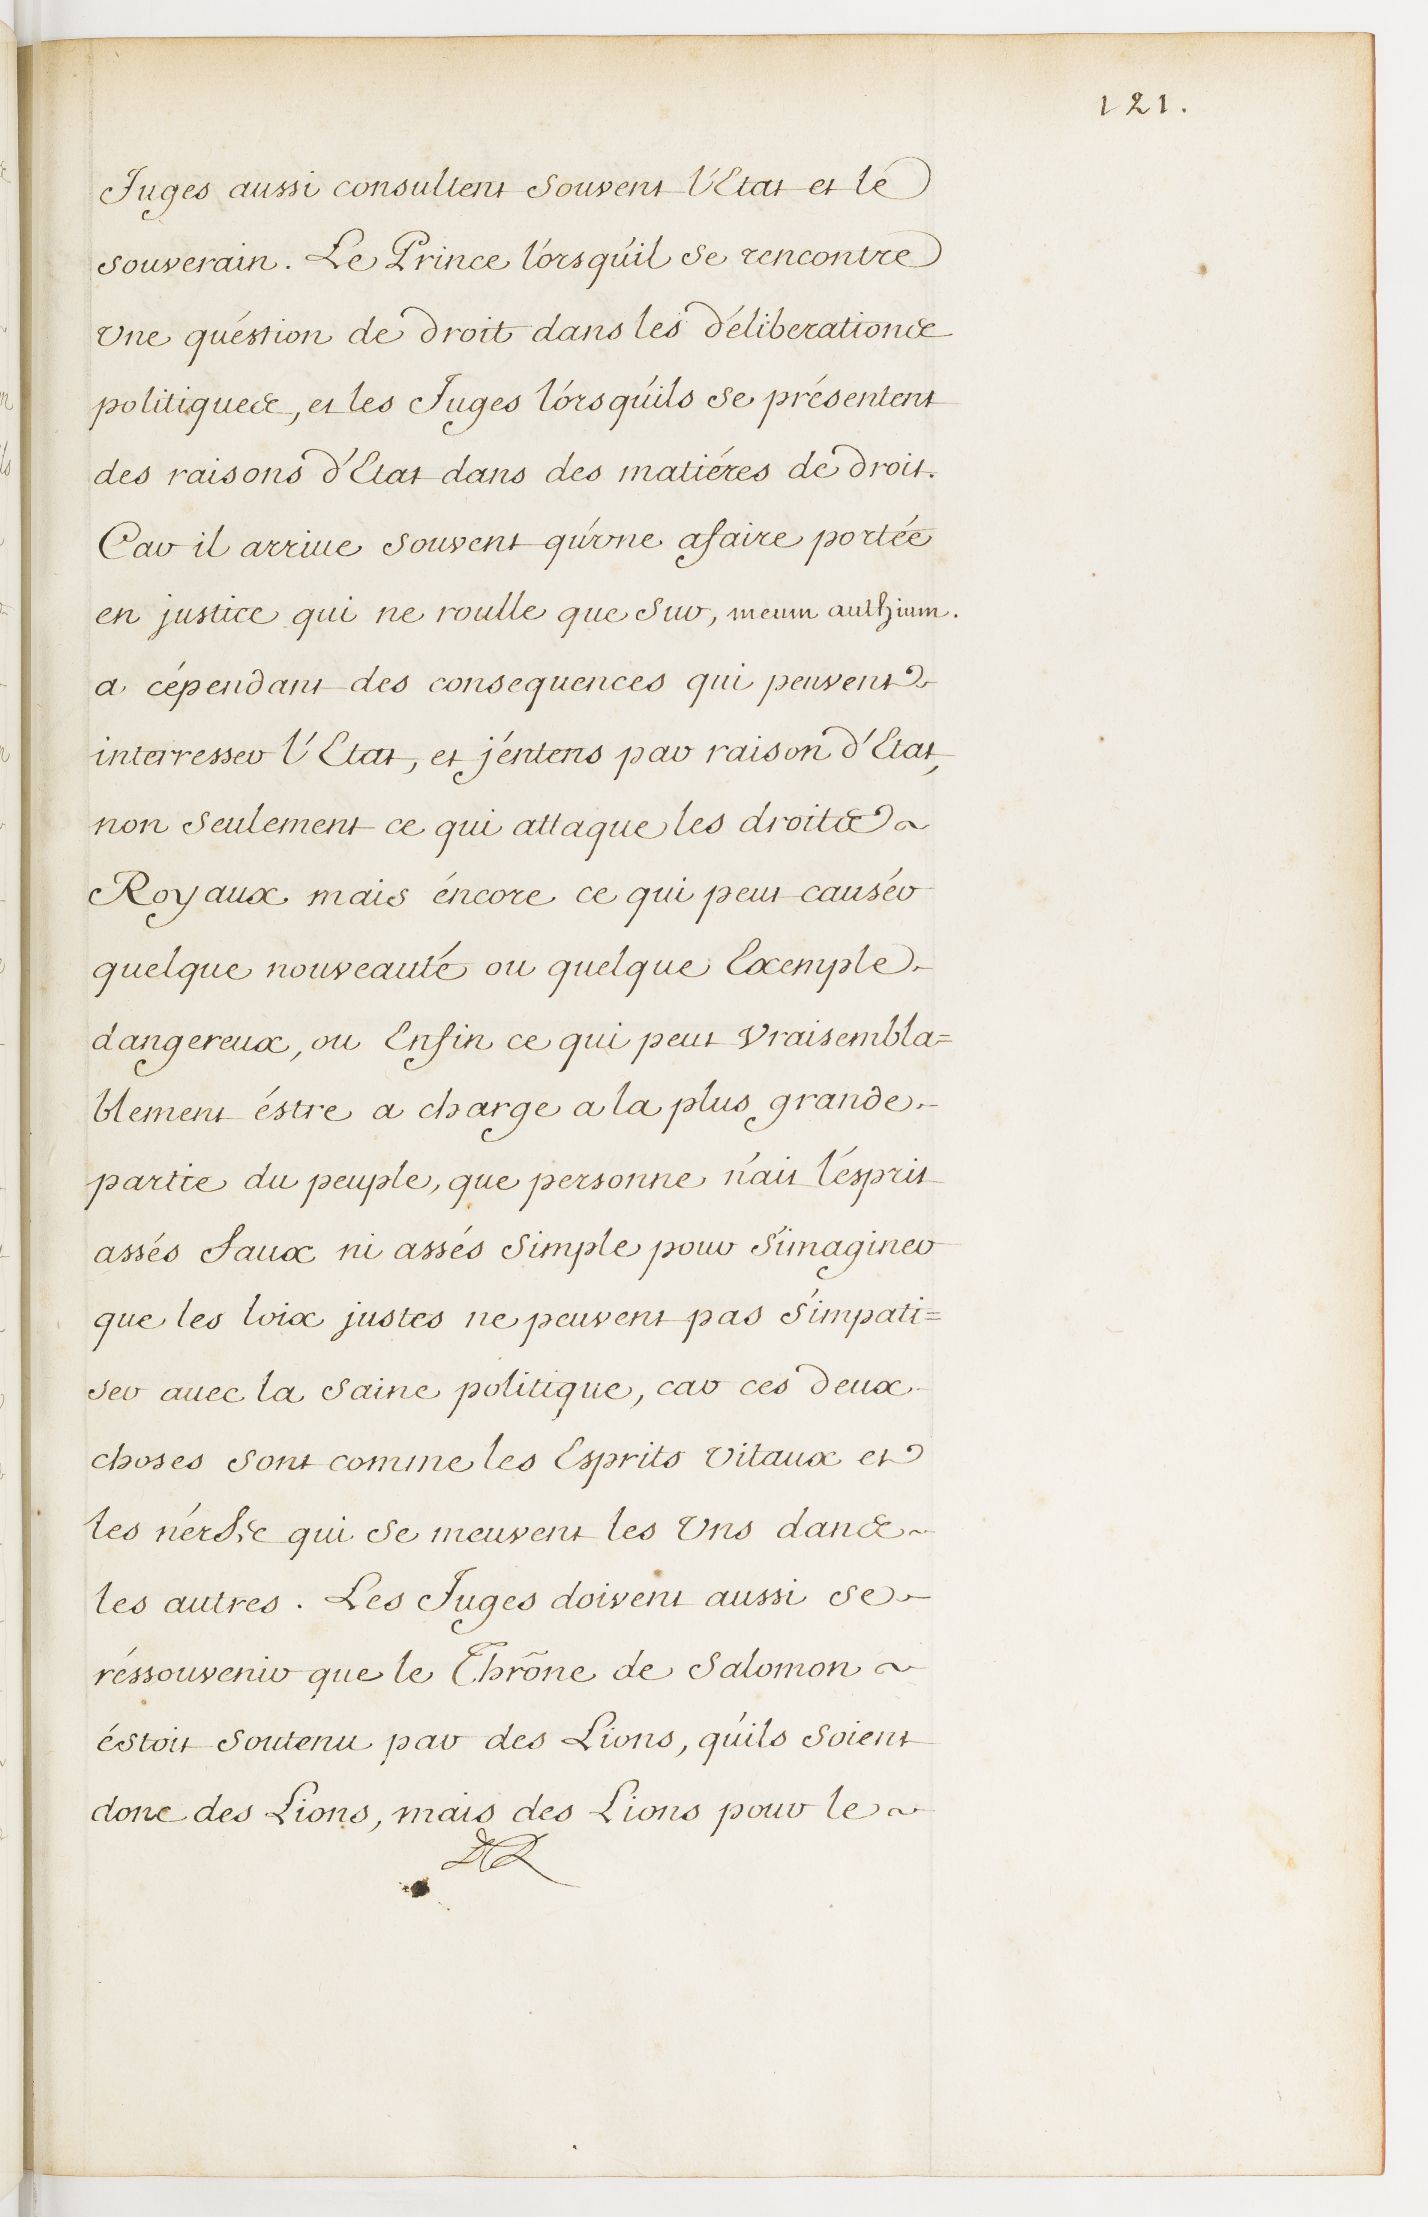 121.
Juges aussi consultent souvent l'Etat et le
souverain. Le Prince l'orsqu'il se rencontre
vne quéstion de droit dans les déliberations
politiques, et les Juges l'orsqu'ils se présentent
des raisons d'Etat dans des matiéres de droit.
Car il arriue souvent qu'vne afaire portée
en justice qui ne roulle que sur, meum authium.
a cépendant des consequences qui peuvent
interresser l'Etat, et j'entens par raison d'Etat,
non seulement ce qui attaque les droits
Royaux mais éncore ce qui peut causér
quelque nouveauté ou quelque Exemple
dangereux, ou Enfin ce qui peut vraisembla=
blement éstre a charge a la plus grande
partie du peuple, que personne n'ait l'esprit
assés faux ni assés simple pour s'imaginer
que les loix justes ne peuvent pas s'impati=
ser auec la saine politique, car ces deux
choses sont comme les Esprits vitaux et
les nérfs qui se meuvent les vns dans
les autres. Les Juges doivent aussi se
réssouvenir que le Thrône de Salomon
éstoit soutenu par des Lions, qu'ils soient
donc des Lions, mais des Lions pour le